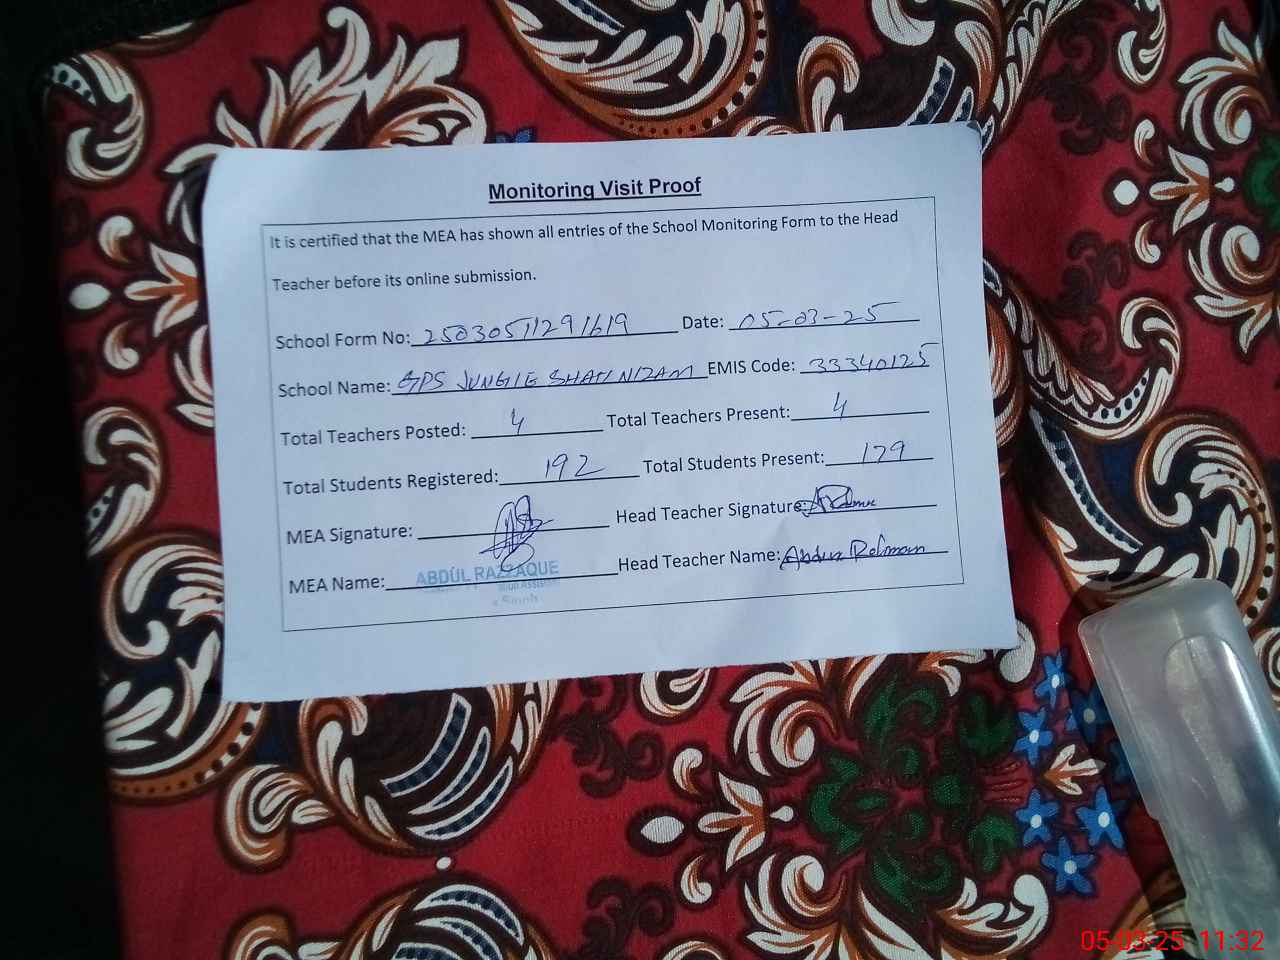 Monitoring Visit Proof
It is certified that the MEA has shown all entries of the School Monitoring Form to the Head
Teacher before its online submission.
School Form No: 25030511291619 Date: 05-03-25
School Name: GPS JUNGLE SHAH NIZAM EMIS Code: 33340125
Total Teachers Posted: 4 Total Teachers Present: 4
Total Students Registered: 192 Total Students Present: 179
MEA Signature: Head Teacher Signature:
MEA Name: ABDUL RAZZAQUE Head Teacher Name: Abdur Rehman
05-03-25 11:32